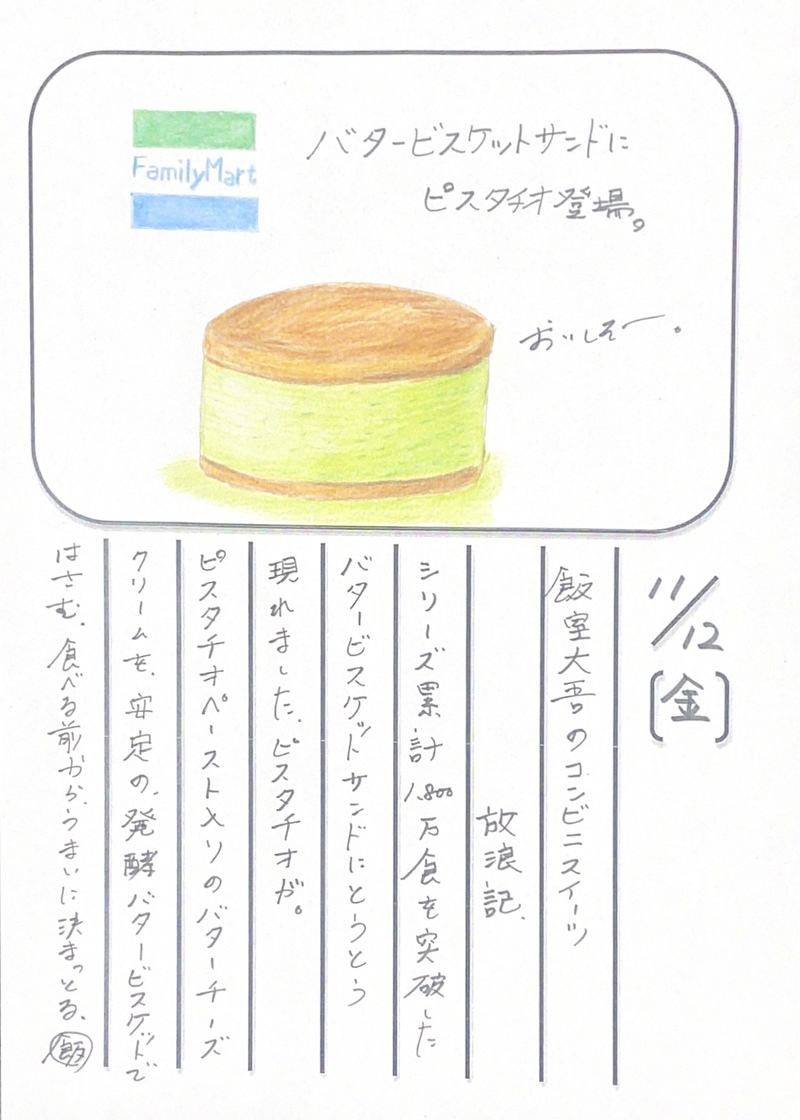 FamilyMart
バタービスケットサンドに
ピスタチオ登場。
おいしそー。
11/12
[金]
飯室大吾のコンビニスイーツ
放浪記、
シリーズ累計1,800万食を突破した
バタービスケットサンドにとうとう
現れました、ピスタチオが。
ピスタチオペースト入りのバターチーズ
クリームを、安定の、発酵バタービスケットで
はさむ。食べる前から、うまいに決まっとる。
飯